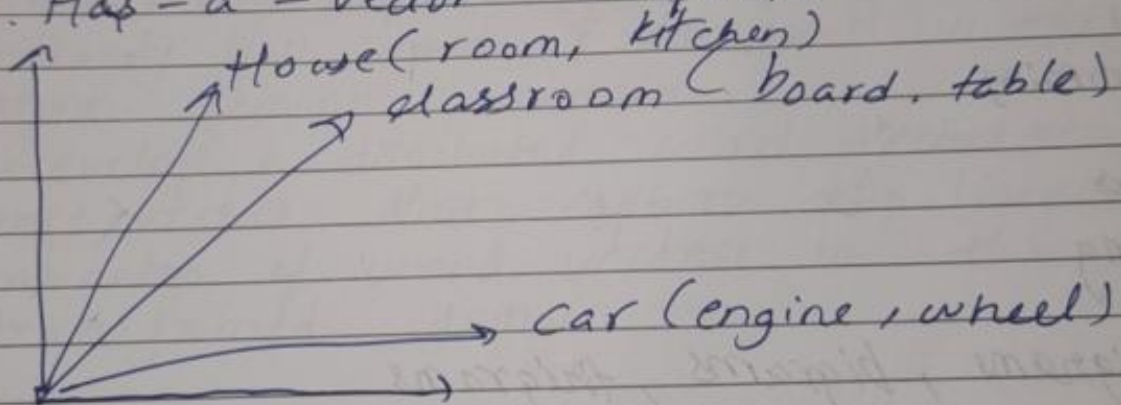 Has - a - vector
House (room, kitchen)
classroom (board, table)
Car (engine, wheel)